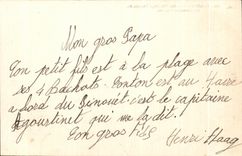 Mon gros Papa
Ton petit fils est à la plage avec
ses 4 Bachots. Tonton est au Havre
a bord du Pinouet c'est le capitaine
Agourtinet qui me la dit.
Ton gros fils
Henri Haag